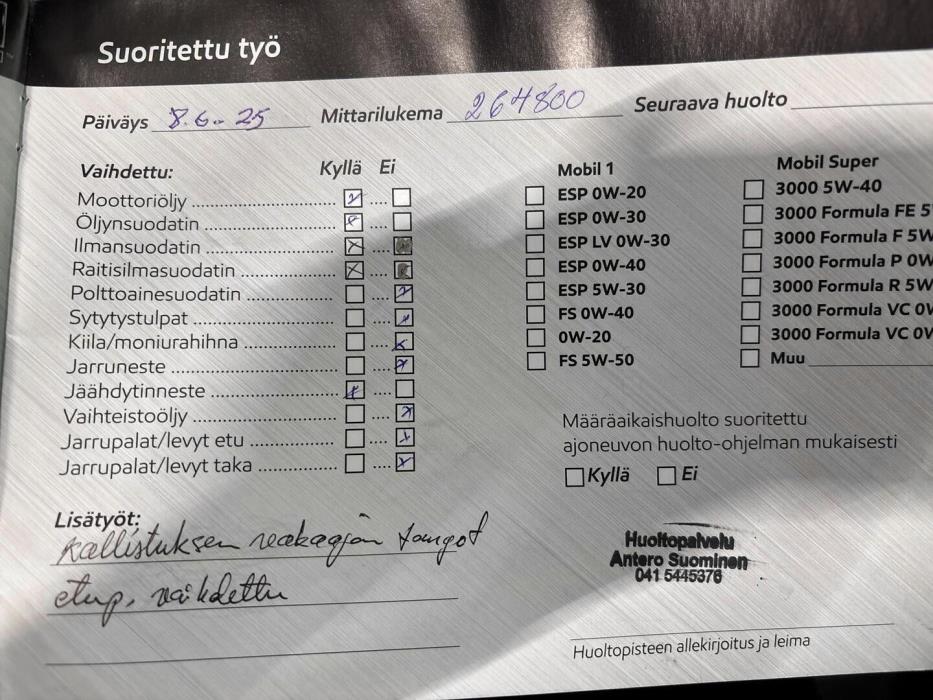 Suoritettu työ
Päiväys 8.6.-25 Mittarilukema 264800 Seuraava huolto
Vaihdettu: Kyllä Ei
Moottoriöljy
Öljynsuodatin
Ilmansuodatin
Raitisilmasuodatin
Polttoainesuodatin
Sytytystulpat
Kiila/moniurahihna
Jarruneste
Jäähdytinneste
Vaihteistoöljy
Jarrupalat/levyt etu
Jarrupalat/levyt taka
Lisätyöt:
Kallistuksen vakaajan tangot
etup. vaihdettu
Mobil 1
ESP 0W-20
ESP 0W-30
ESP LV 0W-30
ESP 0W-40
ESP 5W-30
FS 0W-40
0W-20
FS 5W-50
Mobil Super
3000 5W-40
3000 Formula FE 5
3000 Formula F 5W
3000 Formula P 0W
3000 Formula R 5W
3000 Formula VC 0W
3000 Formula VC 0W
Muu
Määräaikaishuolto suoritettu
ajoneuvon huolto-ohjelman mukaisesti
Kyllä Ei
Huoltopalvelu
Antero Suominen
041 5445376
Huoltopisteen allekirjoitus ja leima